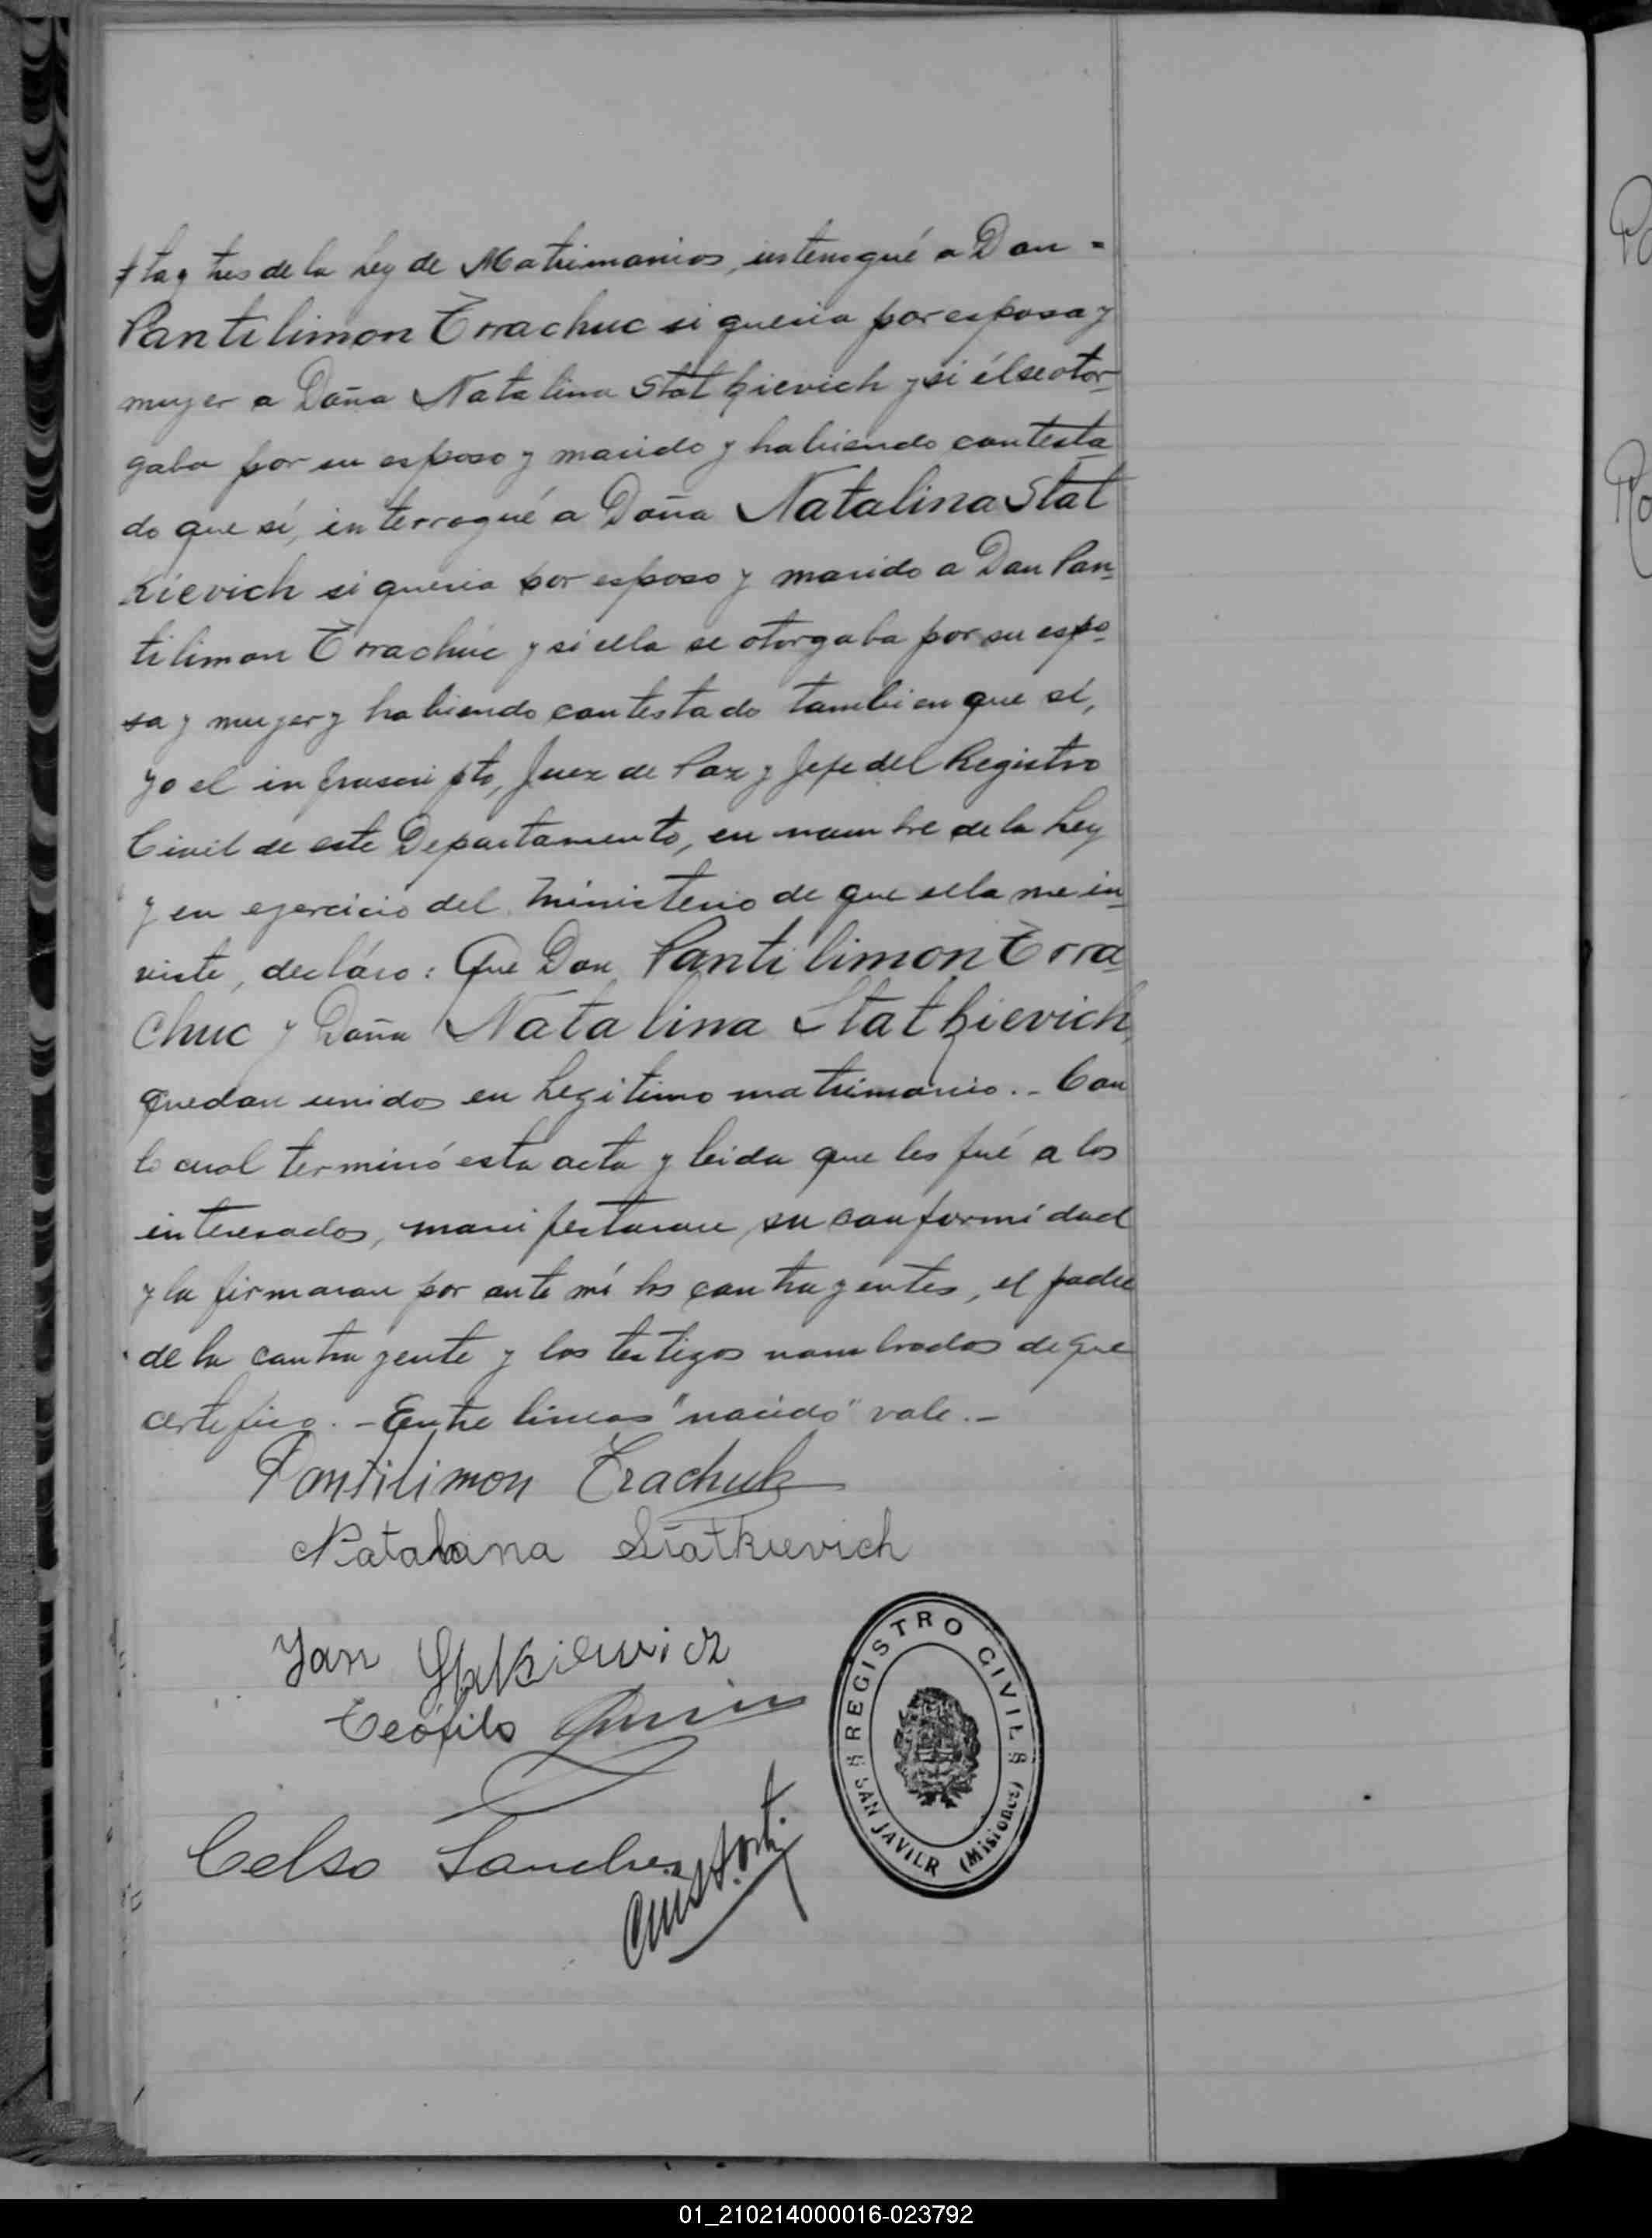 ta y tres de la Ley de Matrimonios, interrogué a Don =
Pantilimon Trrachuc si queria por esposa y
mujer a Doña Natalina Statkievich y si él se otor-
gaba por su esposo y marido y habiendo contesta-
do que sí, interrogué a Doña Natalina Stat
kievich si queria por esposo y marido a Don Pan-
tilimon Trrachuc y si ella se otorgaba por su espo-
sa y mujer y habiendo contestado tambien que sí,
yo el infrascripto, Juez de Paz y Jefe del Registro
Civil de este Departamento, en nombre de la Ley
y en ejercicio del ministerio de que ella me in-
viste, decláro: Que Don Pantilimon Trra-
chuc y Doña Natalina Statkievich,
quedan unidos en Legitimo matrimonio.- Con
lo cual terminó esta acta y leida que les fué a los
interesados, manifestaron su conformidad
y la firmaron por ante mí los contrayentes, el padre
de la contrayente y los testigos nombrados de que
certefico. - Entre lineas "nacido" vale.-
Pantilimon Trachuk
Natalana Statkievich
Jan
Teófilo
Celso Sanchez
REGISTRO CIVIL
SAN JAVIER (Misiones)
01_210214000016-023792